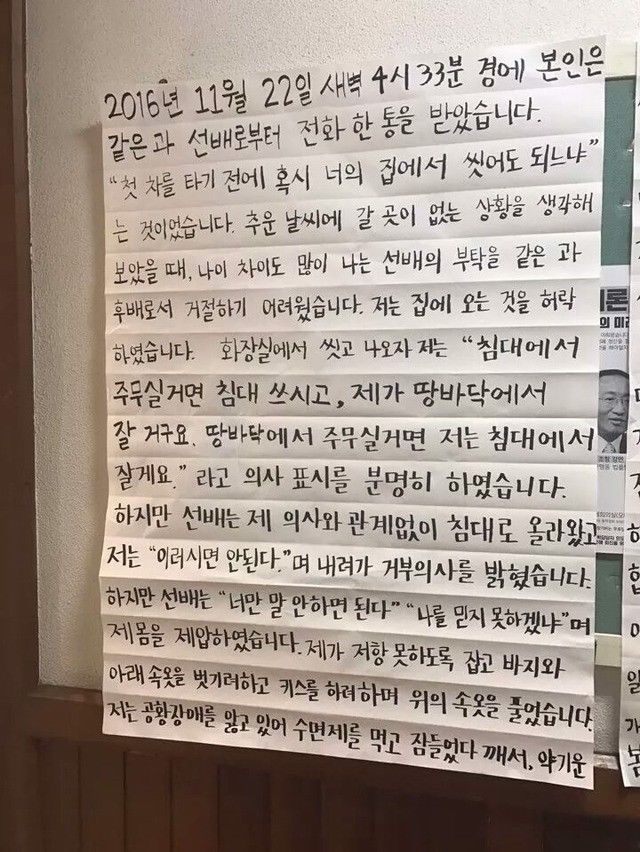 2016년 11월 22일 새벽 4시 33분 경에 본인은
같은 과 선배로부터 전화 한 통을 받았습니다.
"첫 차를 타기 전에 혹시 너의 집에서 씻어도 되느냐"
는 것이었습니다. 추운 날씨에 갈 곳이 없는 상황을 생각해
보았을 때, 나이 차이도 많이 나는 선배의 부탁을 같은 과
후배로서 거절하기 어려웠습니다. 저는 집에 오는 것을 허락
하였습니다. 화장실에서 씻고 나오자 저는 "침대에서
주무실거면 침대 쓰시고, 제가 땅바닥에서
잘 거구요. 땅바닥에서 주무실거면 저는 침대에서
잘게요." 라고 의사 표시를 분명히 하였습니다.
하지만 선배는 제 의사와 관계없이 침대로 올라왔고
저는 "이러시면 안된다."며 내려가 거부의사를 밝혔습니다.
하지만 선배는 "너만 말 안하면 된다" "나를 믿지 못하겠냐"며
제 몸을 제압하였습니다. 제가 저항 못하도록 잡고 바지와
아래 속옷을 벗기려하고 키스를 하려하며 위의 속옷을 풀었습니다.
저는 공황장애를 앓고 있어 수면제를 먹고 잠들었다 깨서, 약기운
이론
의 미래